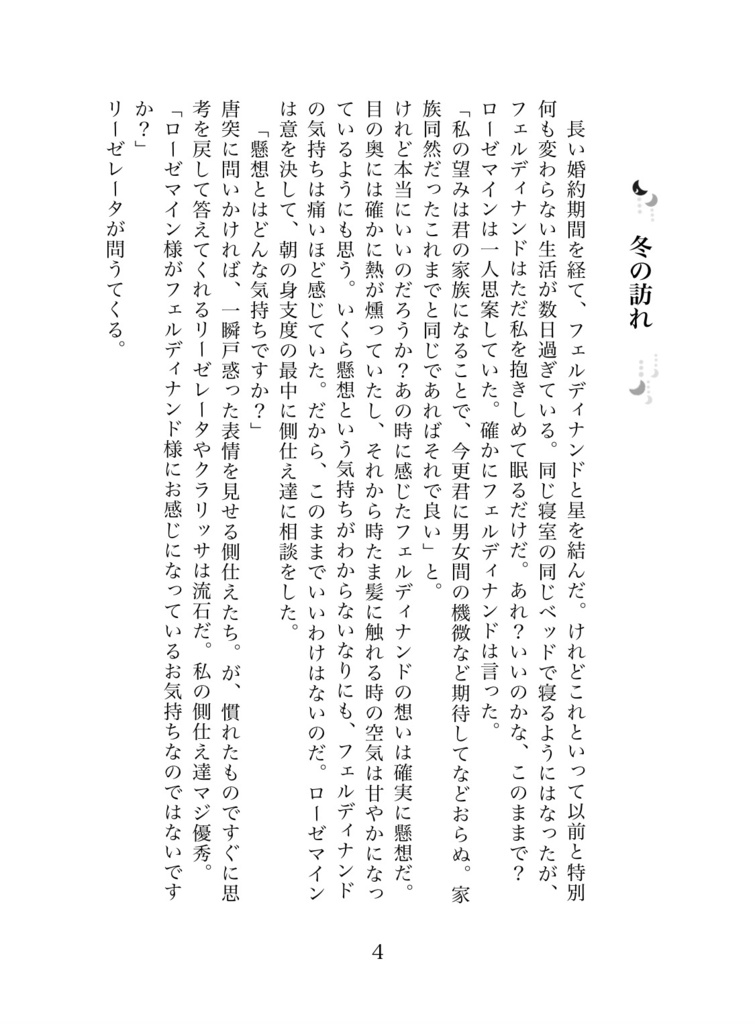 冬の訪れ
長い婚約期間を経て、フェルディナンドと星を結んだ。けれどこれといって以前と特別
何も変わらない生活が数日過ぎている。同じ寝室の同じベッドで寝るようにはなったが、
フェルディナンドはただ私を抱きしめて眠るだけだ。あれ?いいのかな、このままで?
ローゼマインは一人思案していた。確かにフェルディナンドは言った。
「私の望みは君の家族になることで、今更君に男女間の機微など期待してなどおらぬ。家
族同然だったこれまでと同じであればそれで良い」と。
けれど本当にいいのだろうか?あの時に感じたフェルディナンドの想いは確実に懸想だ。
目の奥には確かに熱が燻っていたし、それから時たま髪に触れる時の空気は甘やかになっ
ているようにも思う。いくら懸想という気持ちがわからないなりにも、フェルディナンド
の気持ちは痛いほど感じていた。だから、このままでいいわけはないのだ。ローゼマイン
は意を決して、朝の身支度の最中に側仕え達に相談をした。
「懸想とはどんな気持ちですか?」
唐突に問いかければ、一瞬戸惑った表情を見せる側仕えたち。が、慣れたものですぐに思
考を戻して答えてくれるリーゼレータやクラリッサは流石だ。私の側仕え達マジ優秀。
「ローゼマイン様がフェルディナンド様にお感じになっているお気持ちなのではないです
か?」
リーゼレータが問うてくる。
4